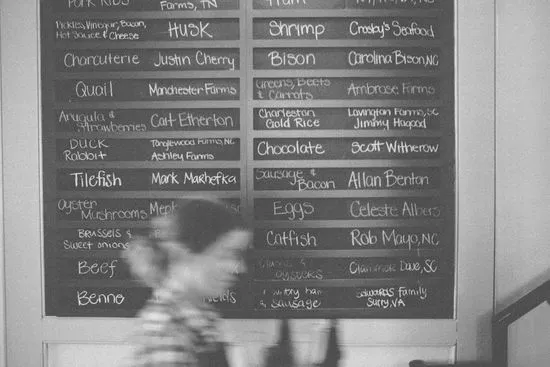 PORK RIBS
Farms, TN
Pickles, Vinegar, Bacon,
Hot Sauce & Cheese
HUSK
Charcuterie
Justin Cherry
Quail
Manchester Farms
Arugula &
Strawberries
Cait Etherton
DUCK
Rabbit
Tanglewood Farms, NC
Ashley Farms
Tilefish
Mark Marhefka
Oyster
Mushrooms
BRUSSELS &
Sweet onions
Beef
Benne
Ham
Shrimp
Crosby's Seafood
Bison
Carolina Bison, NC
Greens, Beets
& Carrots
Ambrose Farms
Charleston
Gold Rice
Lavington Farms, SC
Jimmy Hagood
Chocolate
Scott Witherow
Sausage &
Bacon
Allan Benton
Eggs
Celeste Albers
Catfish
Rob Mayo, NC
Clams &
Oysters
Clammer Dave, SC
Country ham
& Sausage
Edwards Family
Surry, VA